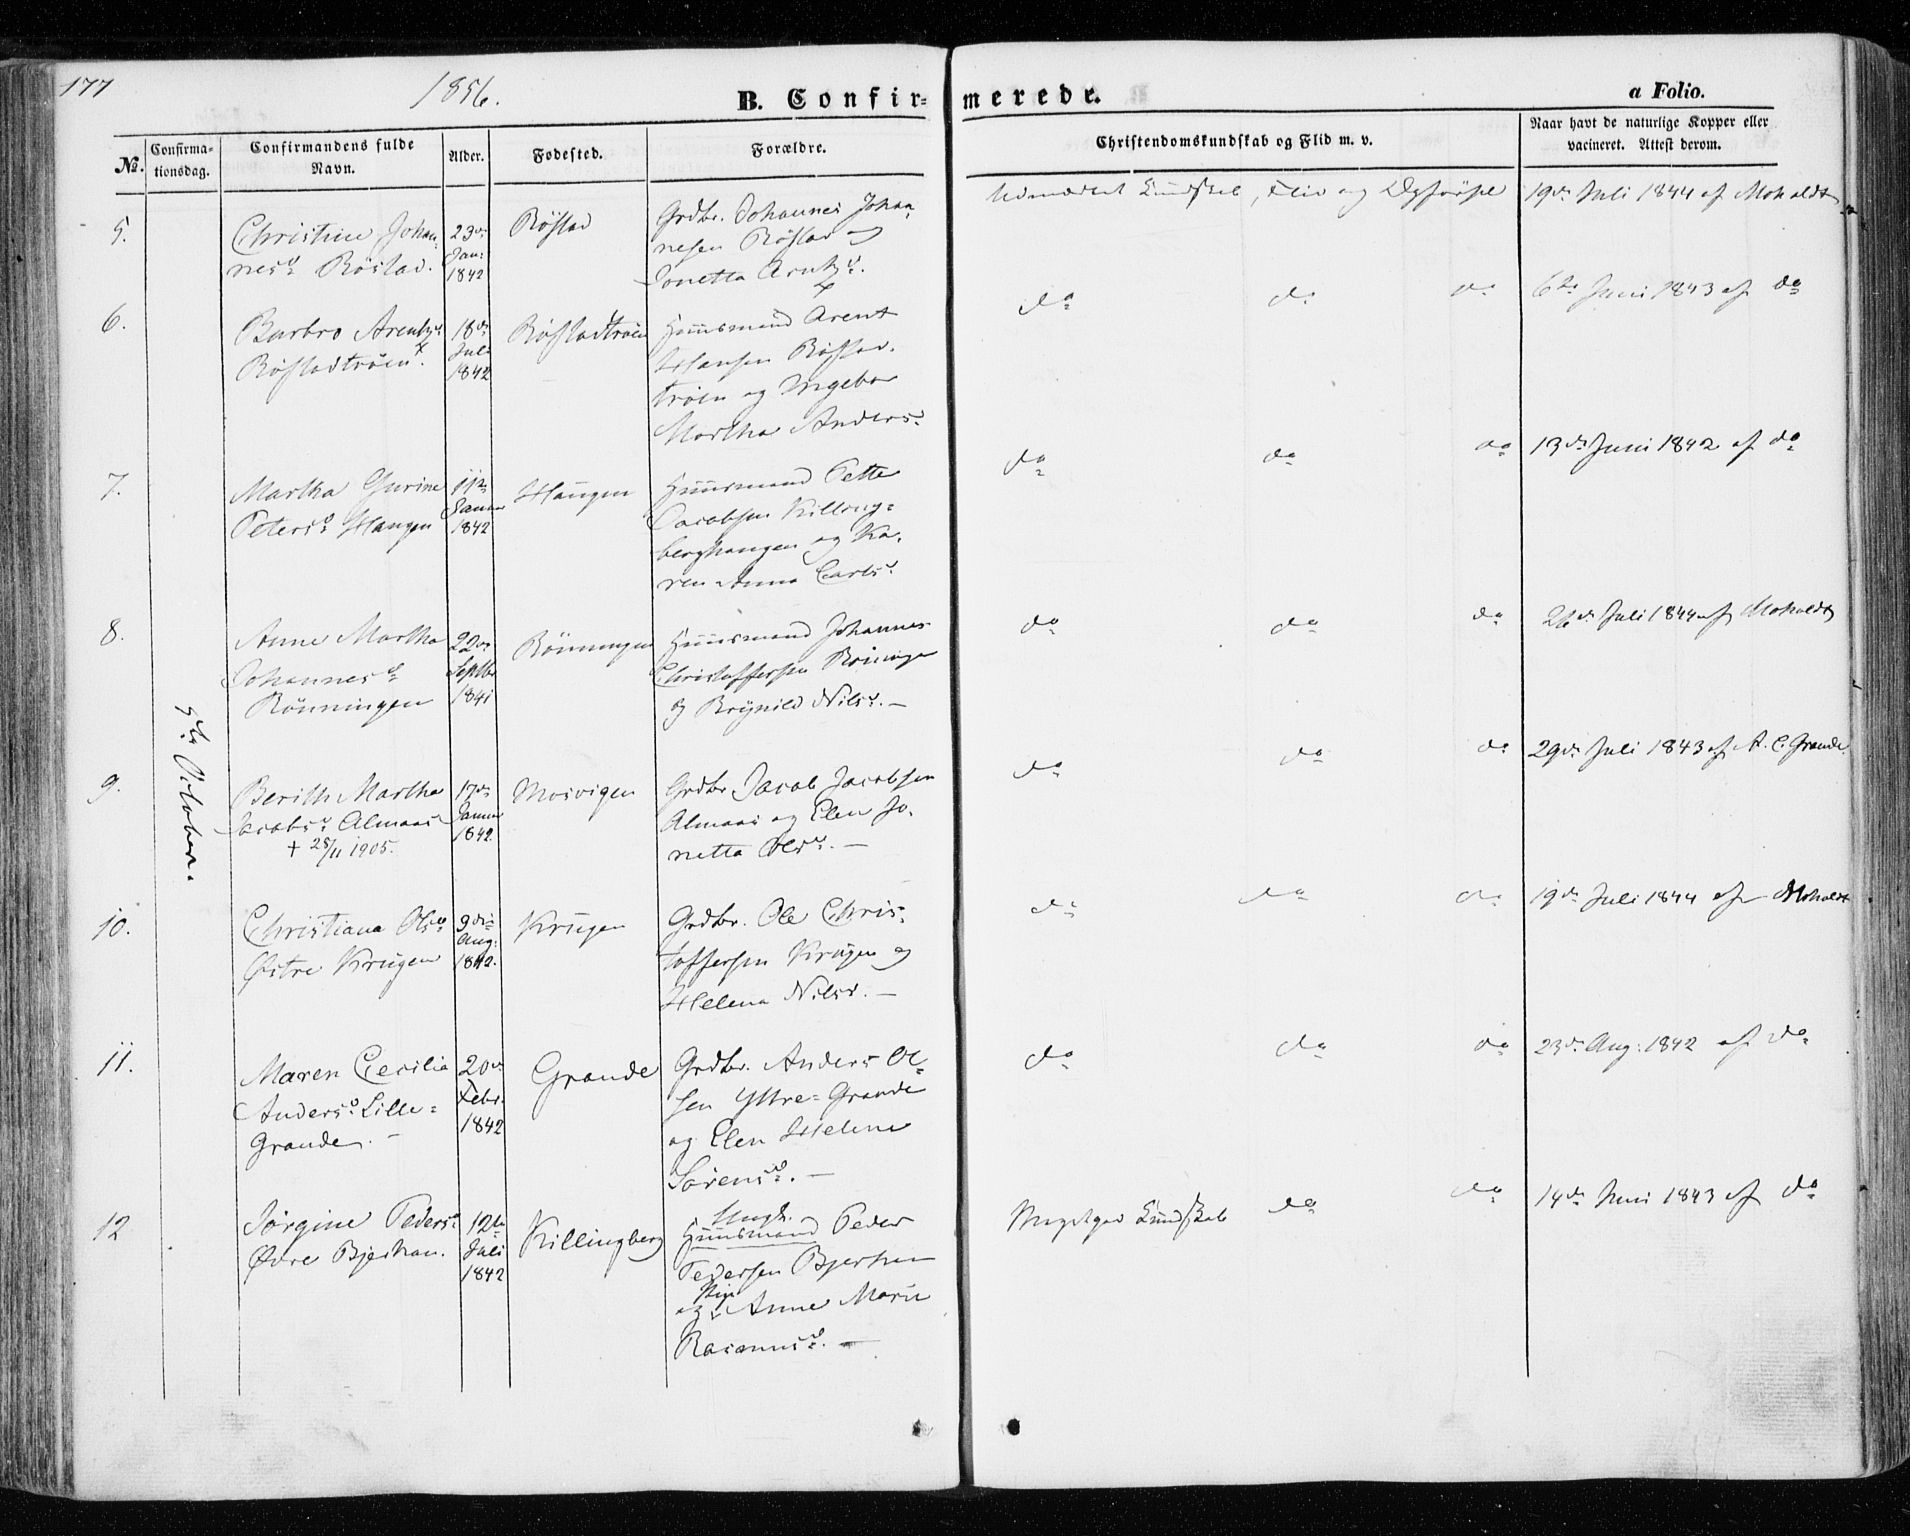 177
1856.
B. Confir- merede.
a Folio.
No.
Confirma-
tionsdag.
Confirmandens fulde
Navn.
Alder.
Fødested.
Forældre.
Christendomskundskab og Flid m. v.
Naar havt de naturlige Kopper eller
vacineret. Attest derom.
5te October.
5.
Christine Johan-
nesd. Röstad.
23de
Jan:
1842
Röstad
Grdbr. Johannes Johan-
nesen Röstad og
Lonetta Arntzd.
Udmærket Kundskab, Flid og Opförsel
19de Juli 1844 af Moholdt
6.
Barbro Arentzd.
Röstadtröen.
18de
Juli
1842
Röstadtröen
Huusmand Arent
Hansen Röstad-
tröen og Ingebor
Martha Andersd.
do do do
6te Juni 1843 af do
7.
Martha Gurine
Petersd. Haugen
11te
Januar
1842
Haugen
Huusmand Petter
Jacobsen Killing-
berghaugen og Ka-
ren Anna Carlsd.
do do do
13de Juni 1842 af do
8.
Anne Martha
Johannesd.
Rönningen
22de
Septbr
1841
Rönningen
Huusmand Johannes
Christoffersen Rönningen
og Brynild Nilsd. —
do do do
26de Juli 1844 af Moholdt
9.
Berith Martha
Jacobsd. Almaas
+ 25/11 1905.
17de
Januar
1842
Mosvigen
Grdbr Jacob Jacobsen
Almaas og Elen Jo-
netta Olsd. —
do do do
29de Juli 1843 af A. C. Grande
10.
Christiana Olsd.
Østre Krugen
9de
Aug:
1842.
Krugen
Grdbr. Ole Chris-
toffersen Krugen og
Helena Nilsd. —
do do do
19de Juli 1844 af Moholdt
11.
Maren Cecilia
Andersd. Lille-
Grande. —
20de
Febr.
1842
Grande
Grdbr. Anders Ol-
sen Yttre-Grande
og Elen Helene
Sörensd. —
do do do
23de Aug: 1842 af do
12
Jörgine Pedersd.
Øvre Bjerkan.
12te
Juli
1842
Killingberg
Ungk.
Huusmand Peder
Pedersen Bjerken
og Pige Anne Marie
Rasmusd. —
Megetgod Kundskab do do
14de Juni 1843 af do